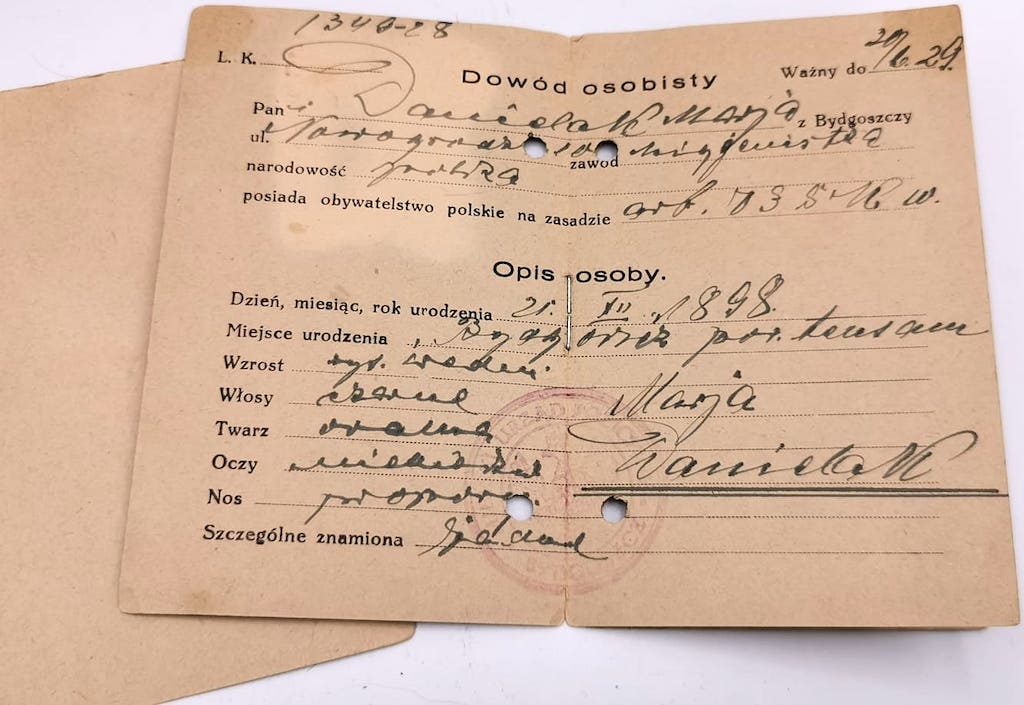 1340-28
L. K. Dowód osobisty Ważny do 29/6. 29.
Pani Danielak Marja z Bydgoszczy
ul. zawód higjenistka
narodowość polska
posiada obywatelstwo polskie na zasadzie
Opis osoby.
Dzień, miesiąc, rok urodzenia 21. XII. 1898.
Miejsce urodzenia Bydgoszcz
Wzrost
Włosy czarne
Twarz owalna
Oczy niebieskie
Nos
Szczególne znamiona żadne
Marja
Danielak
URZĄD